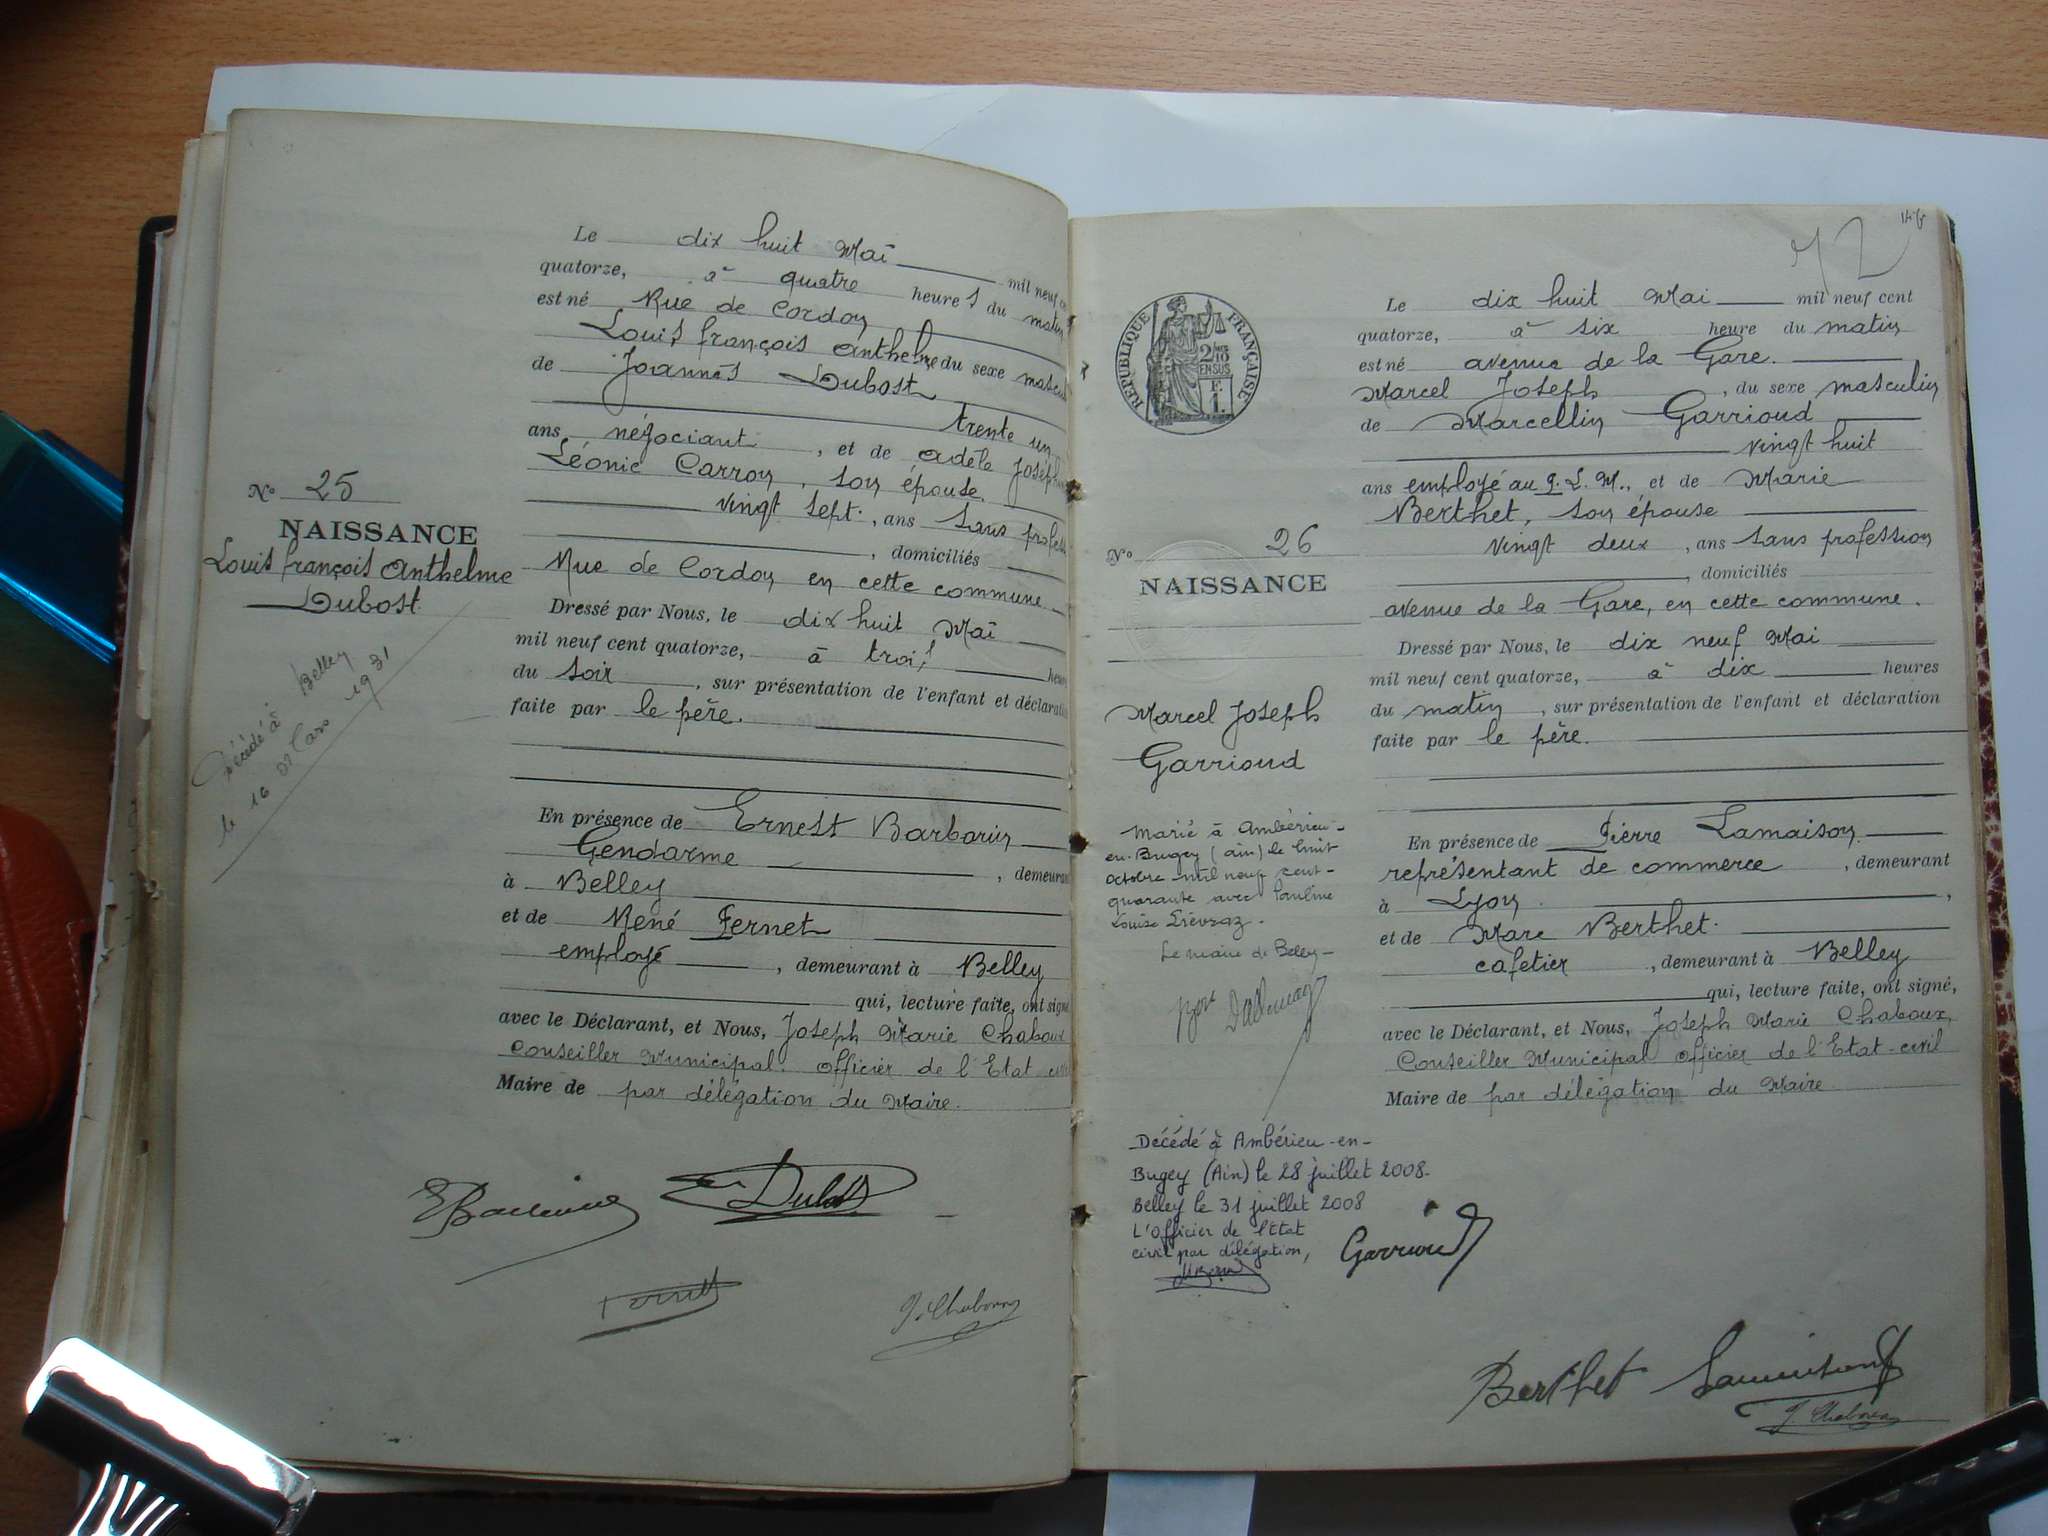 Le dix huit Mai mil neuf
quatorze, à quatre heures du matin
est né Rue de Cordon
Louis françois Anthelme du sexe mascu
de Joannès Dubost
trente un
ans négociant, et de Adèle Joséph
Léonie Carron, son épouse.
vingt sept, ans sans profess
, domiciliés
Rue de Cordon en cette commune
Dressé par Nous, le dix huit Mai
mil neuf cent quatorze, à trois heur
du soir, sur présentation de l'enfant et déclaration
faite par le père.
En présence de Ernest Barbarin
Gendarme, demeurant
à Belley
et de René Fernet
employé, demeurant à Belley
qui, lecture faite, ont signé
avec le Déclarant, et Nous, Joseph Marie Chaboux
Conseiller Municipal. Officier de l'Etat civil
Maire de par délégation du Maire.
N° 25
NAISSANCE
Louis françois Anthelme
Dubost.
Décédé à Belley
le 16 Mars 1931
Dubost
J. Chaboux
72
REPUBLIQUE FRANÇAISE
2/10 EN SUS
Le dix huit Mai mil neuf cent
quatorze, à six heure du matin
est né avenue de la Gare.
Marcel Joseph, du sexe masculin
de Marcellin Garrioud
vingt huit
ans employé au P. L. M., et de Marie
Berthet, son épouse
vingt deux, ans sans profession
, domiciliés
avenue de la Gare, en cette commune.
Dressé par Nous, le dix neuf Mai
mil neuf cent quatorze, à dix heures
du matin, sur présentation de l'enfant et déclaration
faite par le père.
En présence de Pierre Lamaison
représentant de commerce, demeurant
à Lyon,
et de Marc Berthet.
cafetier, demeurant à Belley
qui, lecture faite, ont signé,
avec le Déclarant, et Nous, Joseph Marie Chaboux,
Conseiller Municipal Officier de l'Etat-civil
Maire de par délégation du Maire
N° 26
NAISSANCE
Marcel Joseph
Garrioud
Marié à Ambérieu-
en-Bugey (Ain) le huit
Octobre mil neuf cent-
quarante avec Pauline
Louise
Le Maire de Belley-
Décédé à Ambérieu-en-
Bugey (Ain) le 28 juillet 2008.
Belley le 31 juillet 2008
L'Officier de l'Etat
civil par délégation,
Garrioud
Berthet Lamaison
J. Chaboux